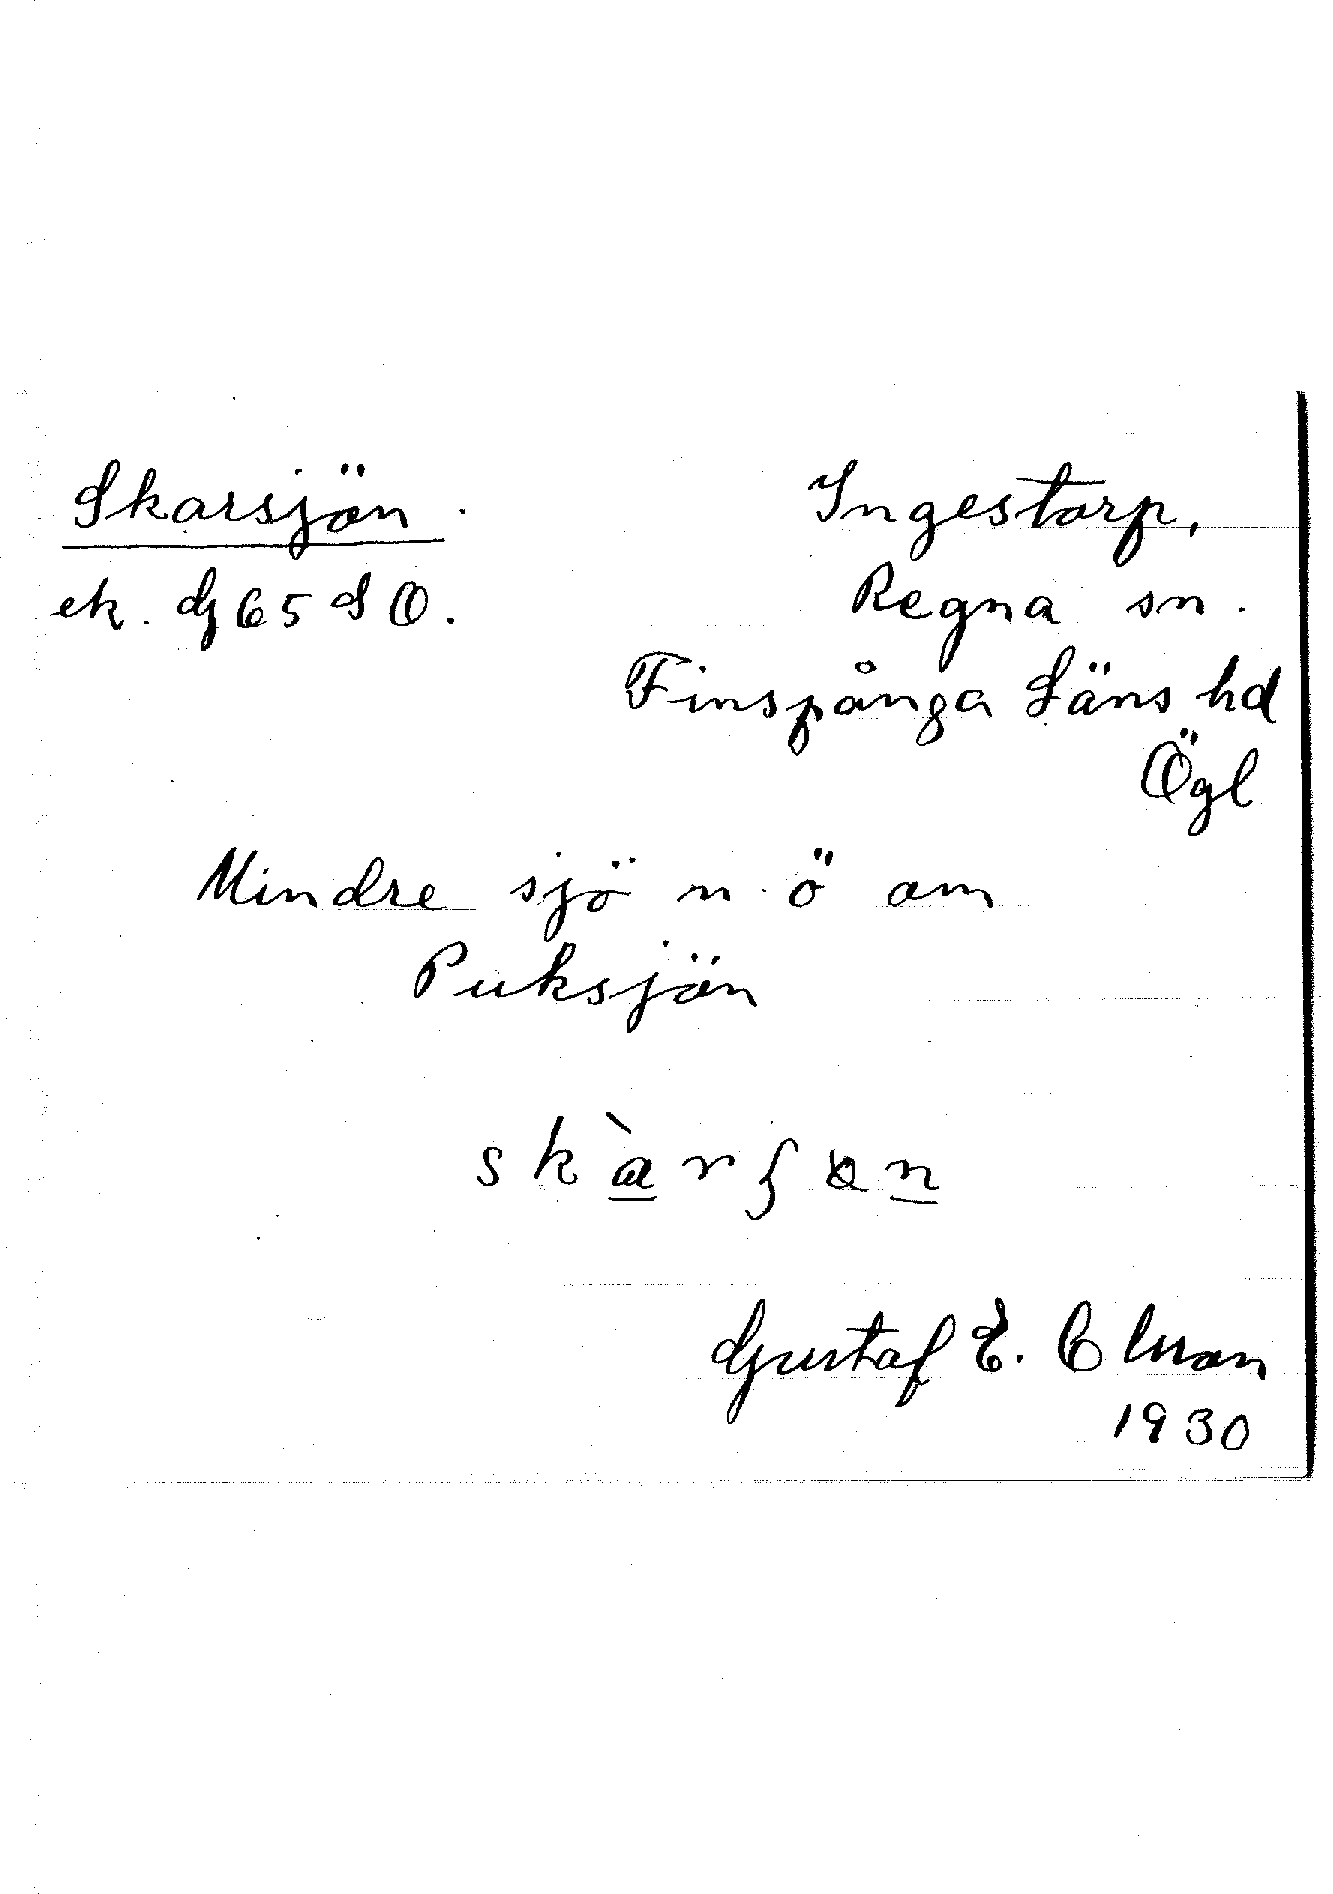 Skarsjön.
ek. G 65 S O.
Ingestorp,
Regna sn.
Finspånga Läns hd
Ögl
Mindre sjö n. ö om
Puksjön
Gustaf E.
1930